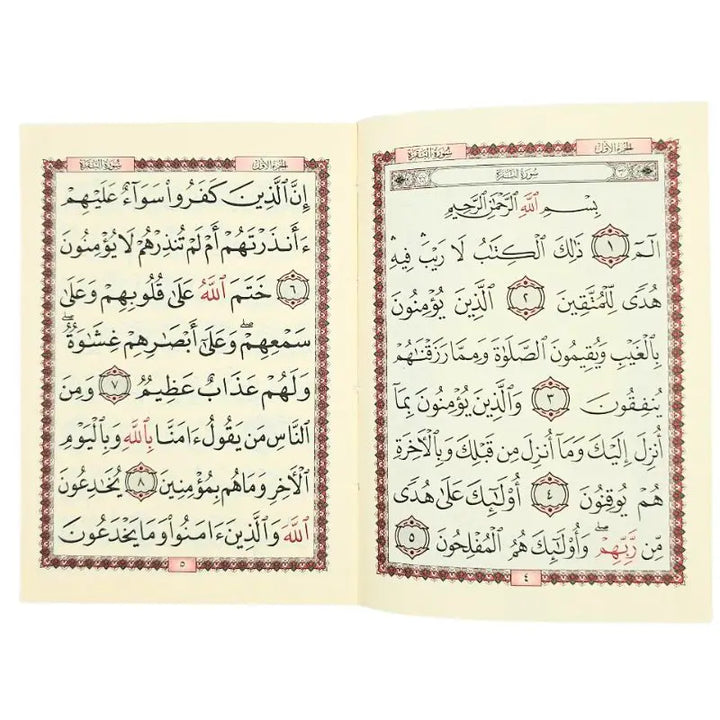 الجزء الأول
سورة البقرة
سورة البقرة
بِسْمِ اللَّهِ الرَّحْمَٰنِ الرَّحِيمِ
الٓمٓ ١ ذَٰلِكَ الْكِتَابُ لَا رَيْبَ ۛ فِيهِ ۛ
هُدًى لِّلْمُتَّقِينَ ٢ الَّذِينَ يُؤْمِنُونَ
بِالْغَيْبِ وَيُقِيمُونَ الصَّلَوٰةَ وَمِمَّا رَزَقْنَٰهُمْ
يُنفِقُونَ ٣ وَالَّذِينَ يُؤْمِنُونَ بِمَا
أُنزِلَ إِلَيْكَ وَمَا أُنزِلَ مِن قَبْلِكَ وَبِالْآخِرَةِ
هُمْ يُوقِنُونَ ٤ أُولَٰئِكَ عَلَىٰ هُدًى
مِّن رَّبِّهِمْ ۖ وَأُولَٰئِكَ هُمُ الْمُفْلِحُونَ ٥
٤
الجزء الأول
سورة البقرة
إِنَّ الَّذِينَ كَفَرُوا سَوَاءٌ عَلَيْهِمْ
ءَأَنذَرْتَهُمْ أَمْ لَمْ تُنذِرْهُمْ لَا يُؤْمِنُونَ
٦ خَتَمَ اللَّهُ عَلَىٰ قُلُوبِهِمْ وَعَلَىٰ
سَمْعِهِمْ ۖ وَعَلَىٰ أَبْصَٰرِهِمْ غِشَٰوَةٌ ۖ
وَلَهُمْ عَذَابٌ عَظِيمٌ ٧ وَمِنَ
النَّاسِ مَن يَقُولُ ءَامَنَّا بِاللَّهِ وَبِالْيَوْمِ
الْأَخِرِ وَمَا هُم بِمُؤْمِنِينَ ٨ يُخَٰدِعُونَ
اللَّهَ وَالَّذِينَ ءَامَنُوا وَمَا يَخْدَعُونَ
٥